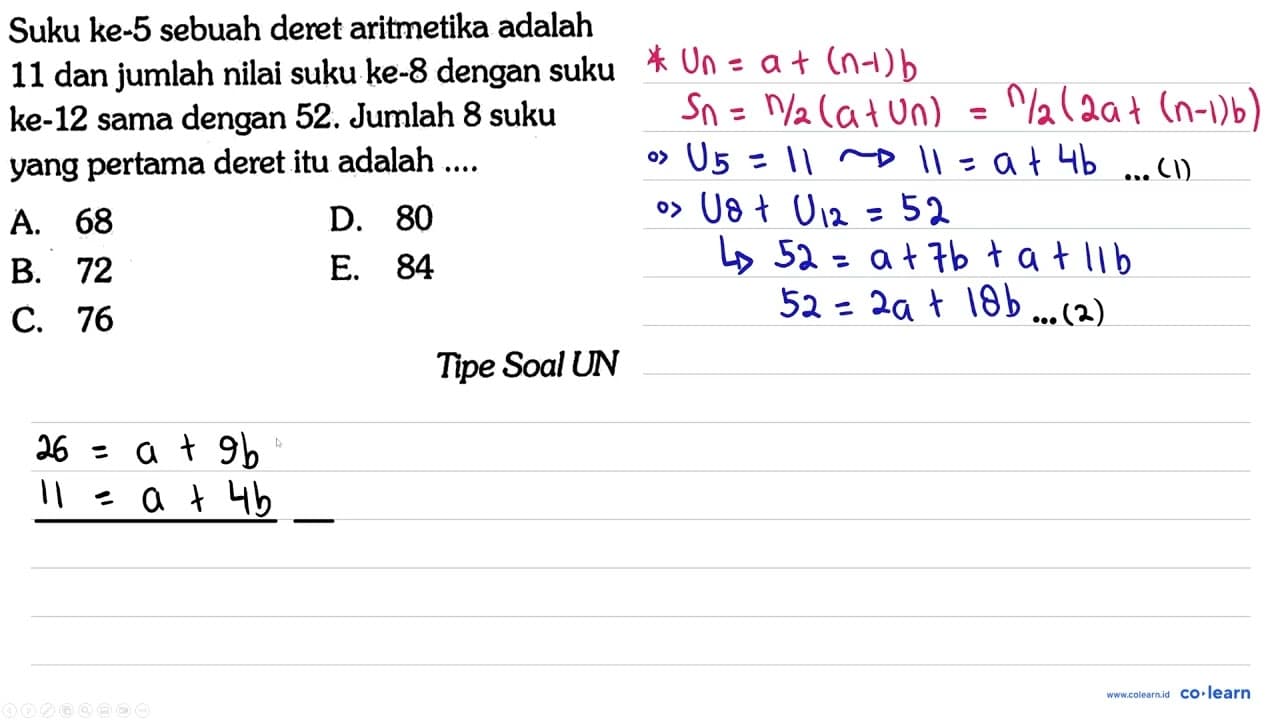 Suku ke-5 sebuah deret aritmetika adalah
11 dan jumlah nilai suku ke-8 dengan suku
ke-12 sama dengan 52. Jumlah 8 suku
yang pertama deret itu adalah ....
A. 68
B. 72
C. 76
D. 80
E. 84
Tipe Soal UN
* Un = a + (n-1)b
Sn = n/2 (a + Un) = n/2 (2a + (n-1)b)
U5 = 11 ~> 11 = a + 4b ...(1)
U8 + U12 = 52
↳ 52 = a + 7b + a + 11b
52 = 2a + 18b ...(2)
26 = a + 9b
11 = a + 4b
www.colearn.id co•learn